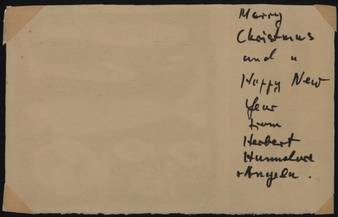 Merry
Christmas
and a
Happy New
Year
from
Herbert
+Angela.